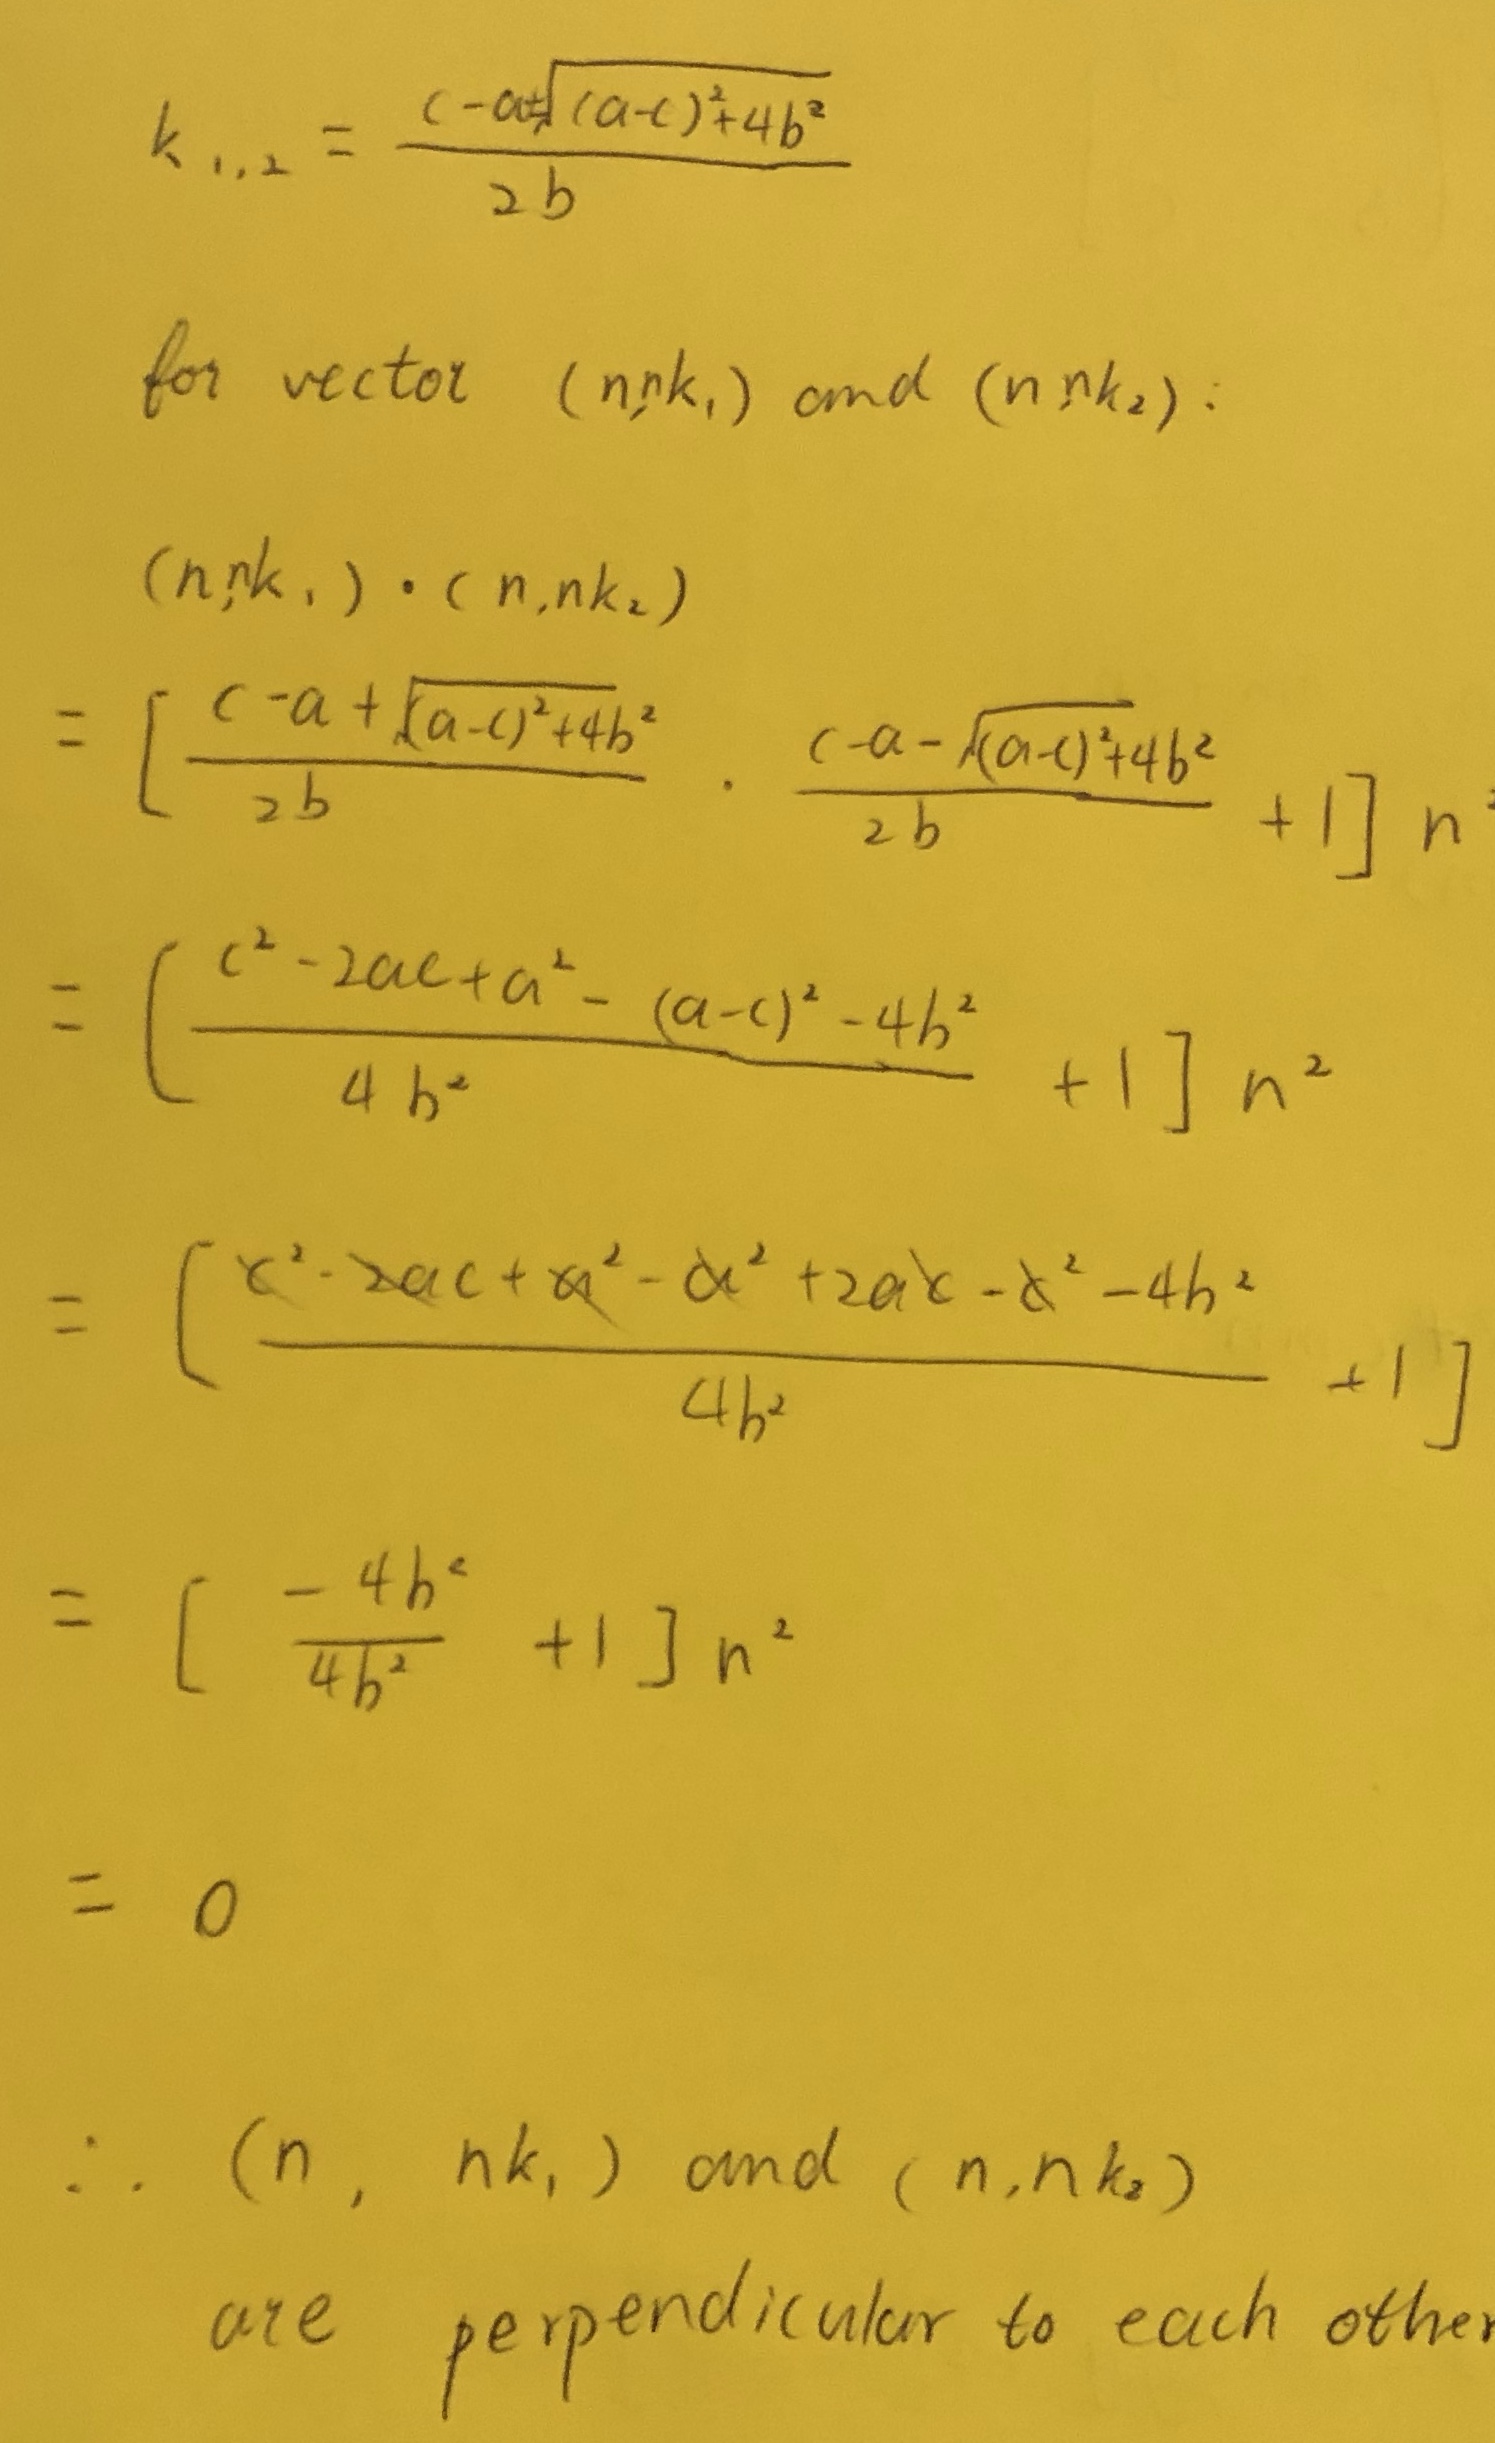 k₁,₂ = (c-a±√((a-c)²+4b²))/(2b)
for vector (n,nk₁) and (n,nk₂):
(n,nk₁)·(n,nk₂)
= [(c-a+√((a-c)²+4b²))/(2b) · (c-a-√((a-c)²+4b²))/(2b) +1] n²
= [(c²-2ac+a²-(a-c)²-4b²)/(4b²) +1] n²
= [(c²-2ac+a²-a²+2ac-c²-4b²)/(4b²) +1]
= [(-4b²)/(4b²) +1] n²
= 0
∴ (n, nk₁) and (n,nk₂)
are perpendicular to each other